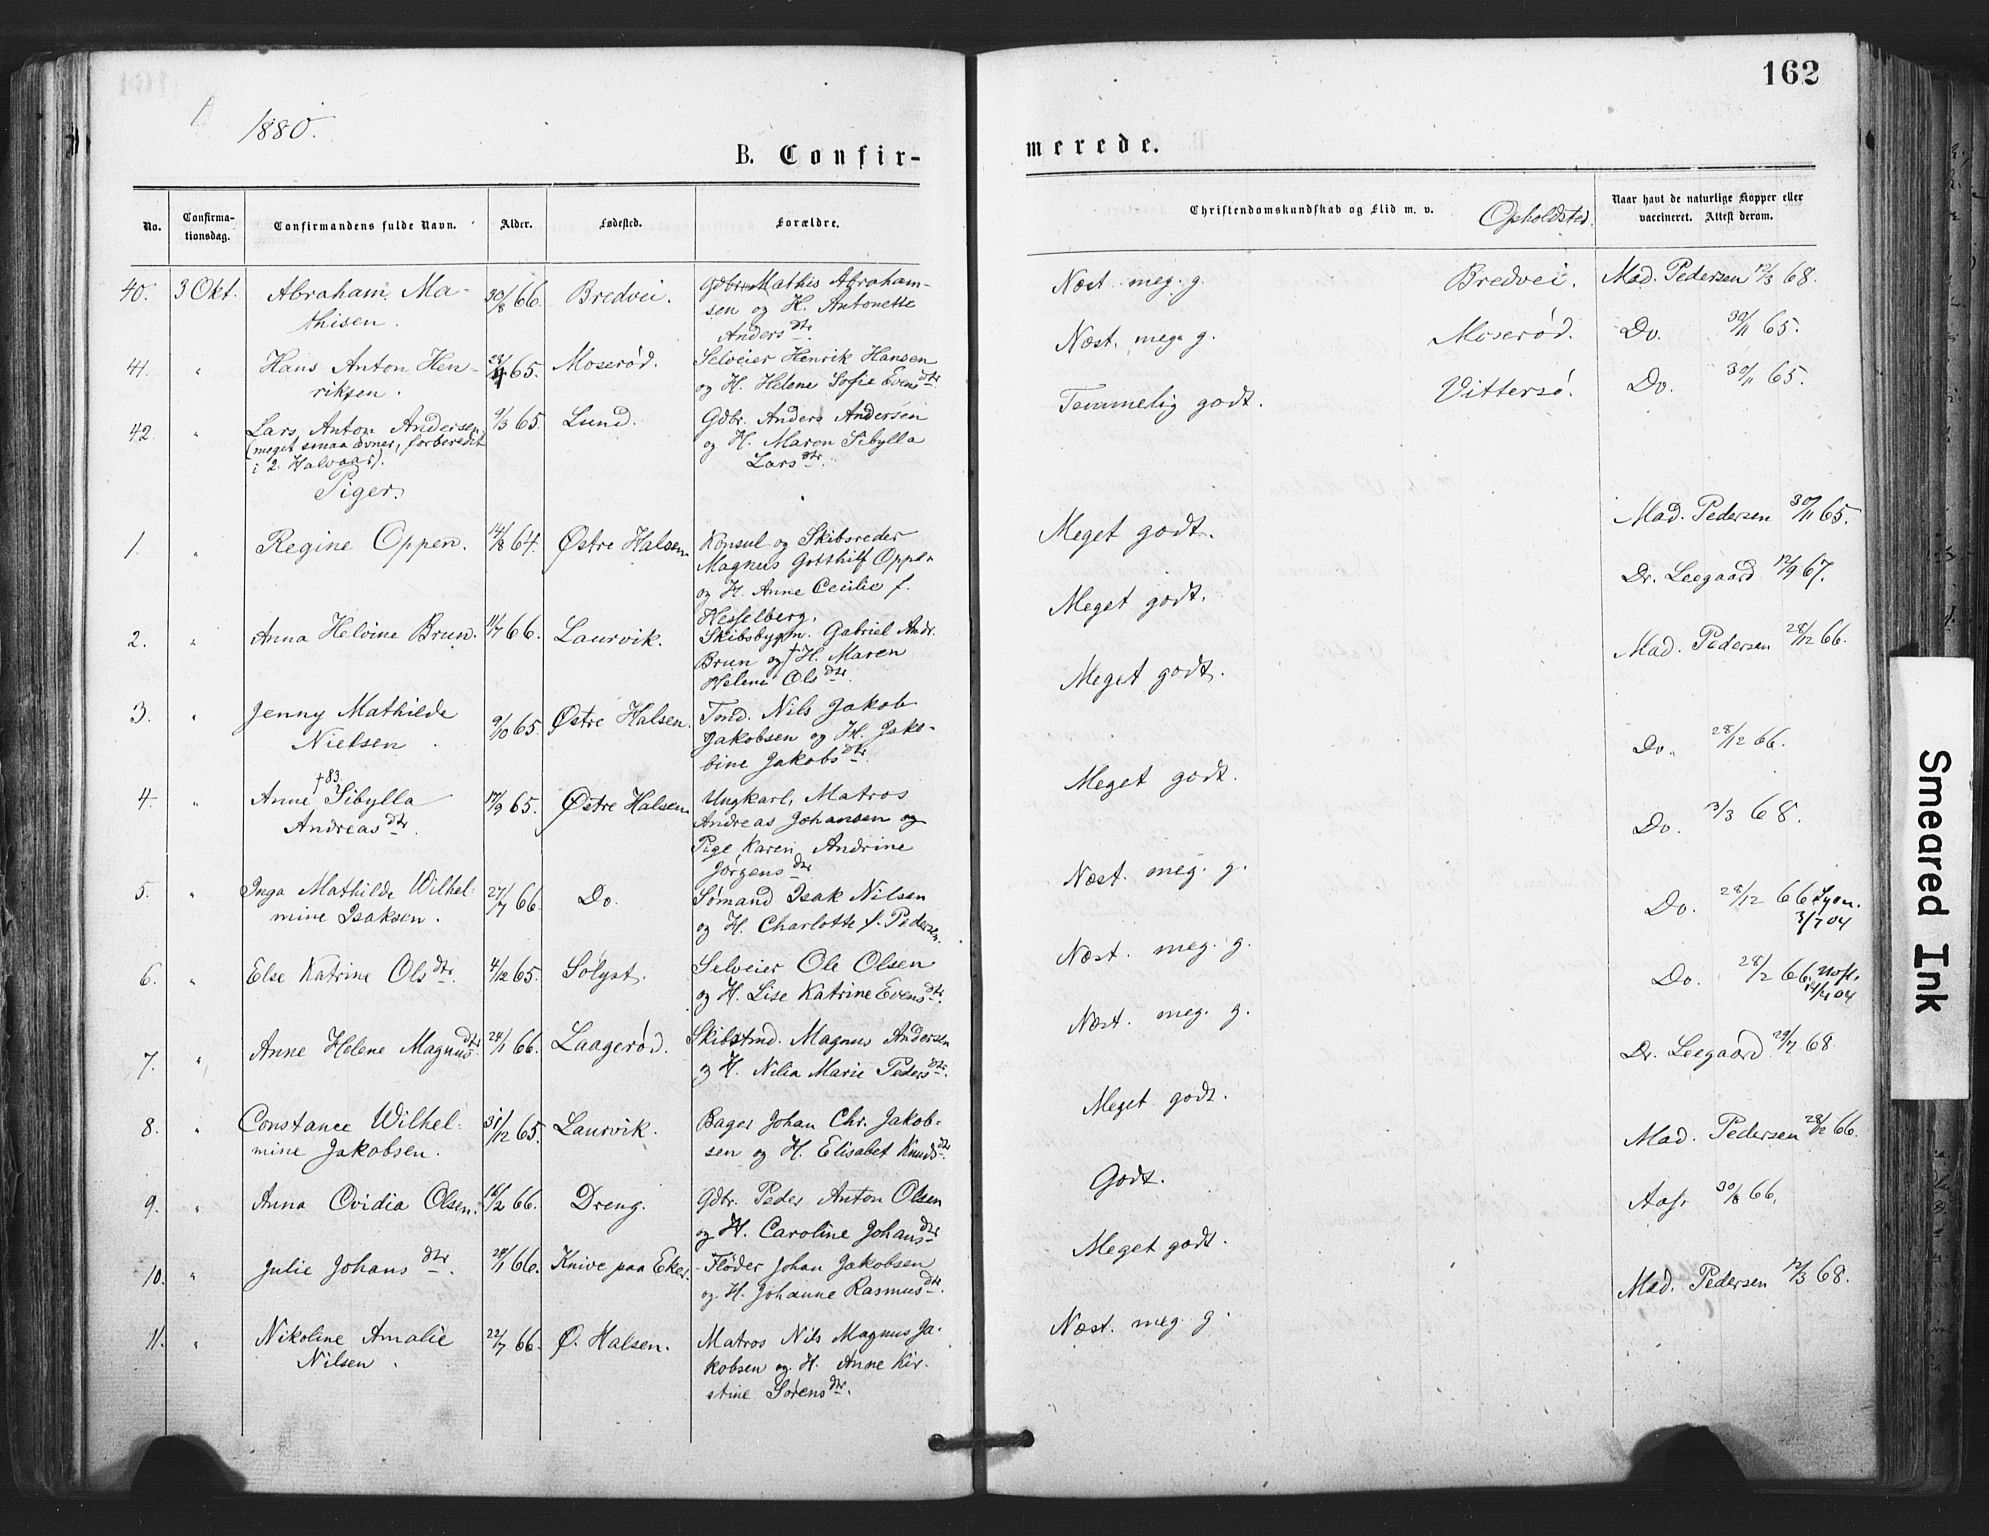 162
1880.
B. Confir-
merede.
No.
Confirma-
tionsdag.
Confirmandens fulde Navn.
Alder.
Fødested.
Forældre.
Christendomskundskab og Flid m. v.
Opholdsted.
Naar havt de naturlige Kopper eller
vaccineret. Attest derom.
40. 3 Okt. Abraham Ma-
thisen.
30/8 66. Bredvei.
Gdbr. Mathis Abraham-
sen og H. Antonette
Andersdtr.
Næst. meg. g. Bredvei. Mad. Pedersen 12/3 68.
41. " Hans Anton Hen-
riksen.
65. Moserød.
Selveier Henrik Hansen
og H. Helene Sofie Evensdtr
Næst. meg. g. Moserød. Do. 30/11 65.
42. " Lars Anton Andersen
(meget smaa evner, forberedt
i 2 Halvaar).
9/3 65. Lund.
Gdbr. Anders Andersen
og H. Maren Sibylla
Larsdtr.
Temmelig godt. Vittersø. Do. 30/11 65.
Piger.
1. " Regine Oppen. 14/8 64. Østre Halsen
Konsul og Skibsreder
Magnus Gotthilf Oppen
og H. Anne Cecilie f.
Hesselberg.
Meget godt. Mad. Pedersen 30/11 65.
2. " Anna Helvine Brun. 11/7 66. Laurvik.
Skibsbygm. Gabriel Andr.
Brun og † H. Maren
Helene Olsdtr
Meget godt. Dr. Leegaard 12/9 67.
3. " Jenny Mathilde
Nielsen.
9/10 65. Østre Halsen.
Tømd. Nils Jakob
Jakobsen og H. Jako-
bine Jakobsdtr.
Meget godt. Mad. Pedersen 28/12 66.
4. " † 83.
Anne Sibylla
Andreasdtr.
17/9 65. Østre Halsen
Ungkarl, Matros
Andreas Johansen og
Pige Karen Andrine
Jørgensdtr
Meget godt. Do. 28/12 66.
5. " Inga Mathilde Wilhel-
mine Isaksen.
27/7 66. Do.
Sømand Isak Nilsen
og H. Charlotte f. Pedersen.
Næst. meg. g. Do. 13/3 68.
6. " Else Katrine Olsdtr. 4/12 65. Sølyst.
Selveier Ole Olsen
og H. Lise Katrine Evensdtr.
Næst. meg. g. Do. 28/12 66.
3/7 04
7. " Anne Helene Magnusdtr. 24/1 66. Laagerød.
Skibstmd. Magnus Andersen
og H. Nilia Marie Pedersdtr.
Næst. meg. g. Do. 28/12 66.
04
8. " Constance Wilhel-
mine Jakobsen.
31/12 65. Laurvik.
Bager Johan Chr. Jakob-
sen og H. Elisabet Knudsdtr.
Meget godt. Dr. Leegaard 29/7 68.
9. " Anna Ovidia Olsen. 16/2 66. Dreng.
Gdbr. Peder Anton Olsen
og H. Caroline Johansdtr
Godt. Mad. Pedersen 28/12 66.
10. " Julie Johansdtr. 29/1 66. Knive paa Eker.
Fløder Johan Jakobsen
og H. Johanne Rasmusdtr.
Meget godt. 30/8 66.
11. " Nikoline Amalie
Nilsen.
22/7 66. Ø. Halsen.
Matros Nils Magnus Ja-
kobsen og H. Anne Kir-
stine Sørensdtr.
Næst. meg. g. Mad. Pedersen 12/3 68.
Smeared Ink